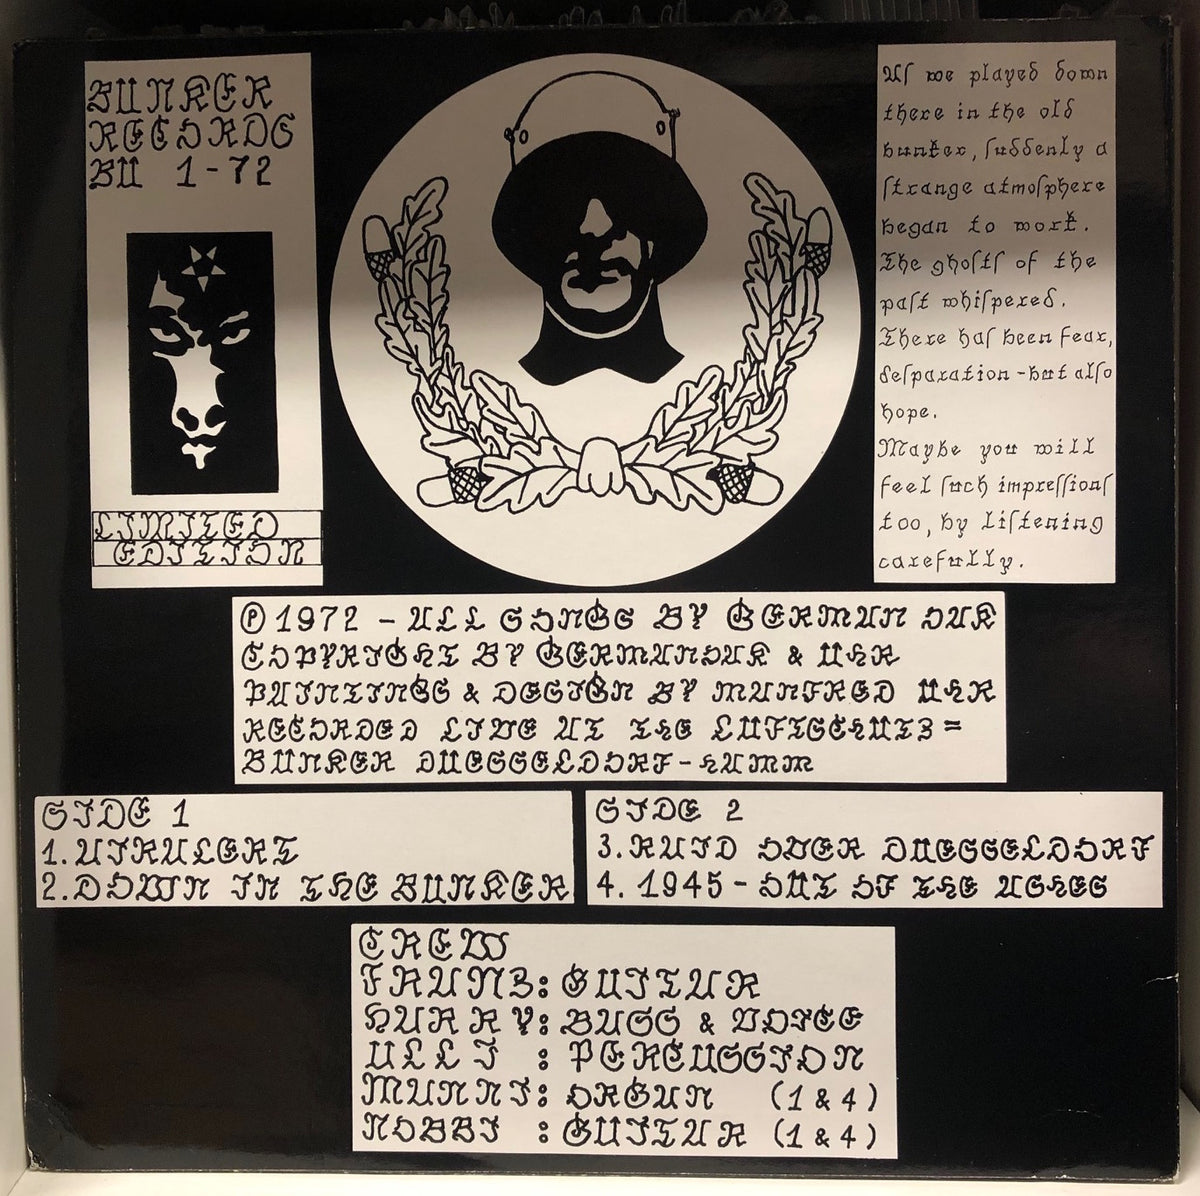 BUNKER
RECORDS
BU 1-72
LIMITED
EDITION
As we played down
there in the old
bunker, suddenly a
strange atmosphere
began to work.
The ghosts of the
past whispered.
There has been fear,
desparation - but also
hope.
Maybe you will
feel such impressions
too, by listening
carefully.
℗ 1972 - ALL SONGS BY GERMAN OAK
COPYRIGHT BY GERMAN OAK & UHR
PAINTINGS & DESIGN BY MANFRED UHR
RECORDED LIVE AT THE LUFTSCHUTZ=
BUNKER DUESSELDORF-HAMM
SIDE 1
1. AIRALERT
2. DOWN IN THE BUNKER
SIDE 2
3. RAID OVER DUESSELDORF
4. 1945 - OUT OF THE ASHES
CREW
FRANZ: GUITAR
HARRY: BASS & VOICE
ULLI : PERCUSSION
MANNI: ORGAN (1 & 4)
NOBBI : GUITAR (1 & 4)